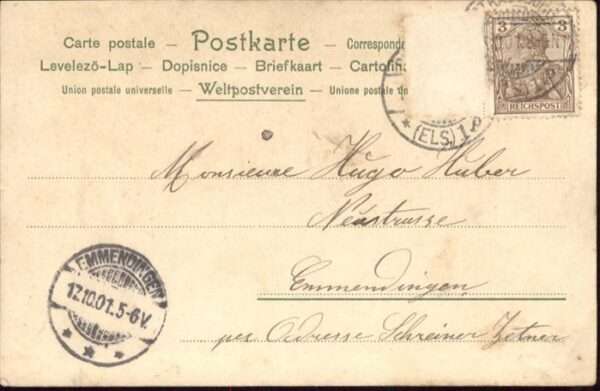 Carte postale — Postkarte — Corresponde
Levelezö-Lap — Dopisnice — Briefkaart — Cartolin
Union postale universelle — Weltpostverein — Unione postale un
3 3
REICHSPOST
(ELS.) 1
Monsieur Hugo Huber
Neustrasse
Emmendingen
per Adresse Schreiner Zetner
EMMENDINGEN
17.10.01.5-6V.